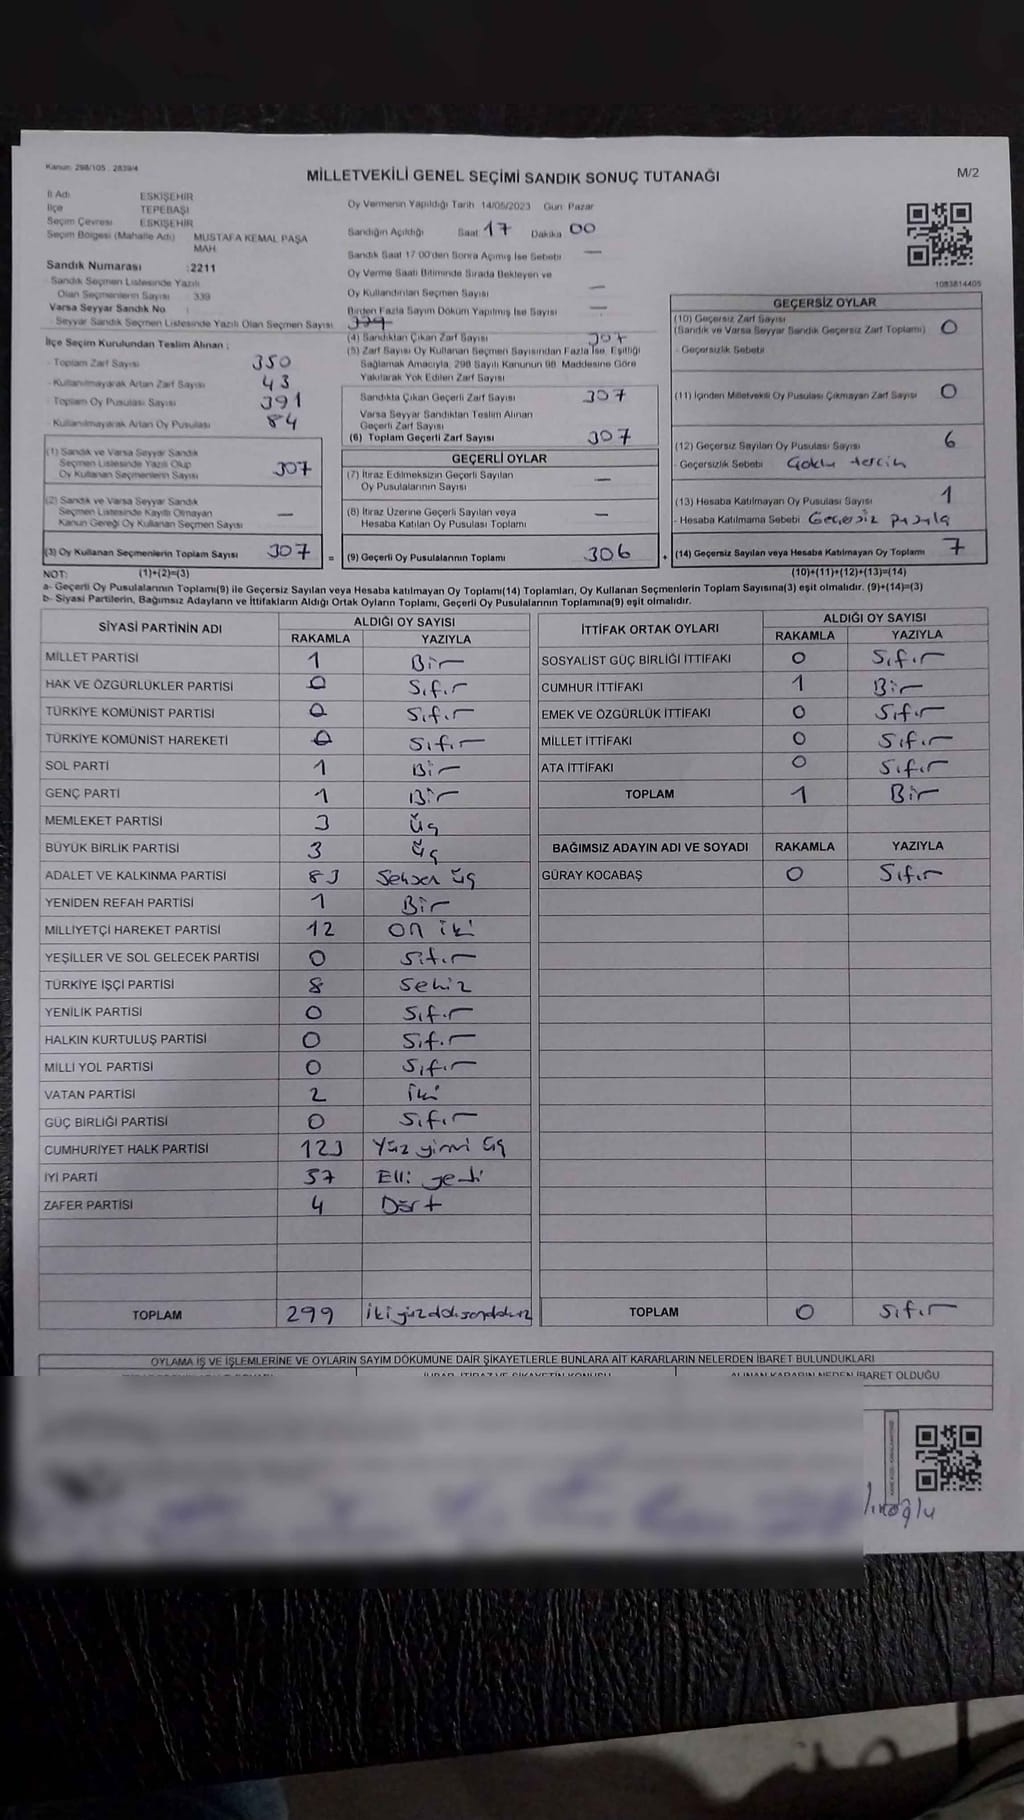 Kanun: 298/105 , 2839/4
MİLLETVEKİLİ GENEL SEÇİMİ SANDIK SONUÇ TUTANAĞI
M/2
İl Adı ESKİŞEHİR
İlçe TEPEBAŞI
Seçim Çevresi ESKİŞEHİR
Seçim Bölgesi (Mahalle Adı) MUSTAFA KEMAL PAŞA MAH.
Sandık Numarası :2211
Sandık Seçmen Listesinde Yazılı
Olan Seçmenlerin Sayısı : 339
Varsa Seyyar Sandık No :
Seyyar Sandık Seçmen Listesinde Yazılı Olan Seçmen Sayısı
İlçe Seçim Kurulundan Teslim Alınan ;
- Toplam Zarf Sayısı 350
- Kullanılmayarak Artan Zarf Sayısı 43
- Toplam Oy Pusulası Sayısı 391
- Kullanılmayarak Artan Oy Pusulası 84
(1) Sandık ve Varsa Seyyar Sandık
Seçmen Listesinde Yazılı Olup
Oy Kullanan Seçmenlerin Sayısı 307
(2) Sandık ve Varsa Seyyar Sandık
Seçmen Listesinde Kayıtlı Olmayan
Kanun Gereği Oy Kullanan Seçmen Sayısı —
(3) Oy Kullanan Seçmenlerin Toplam Sayısı 307 =
Oy Vermenin Yapıldığı Tarih 14/05/2023 Gün Pazar
Sandığın Açıldığı Saat 17 Dakika 00
Sandık Saat 17:00'den Sonra Açılmış İse Sebebi —
Oy Verme Saati Bitiminde Sırada Bekleyen ve
Oy Kullandırılan Seçmen Sayısı —
Birden Fazla Sayım Döküm Yapılmış İse Sayısı —
(4) Sandıktan Çıkan Zarf Sayısı 307
(5) Zarf Sayısı Oy Kullanan Seçmen Sayısından Fazla İse, Eşitliği
Sağlamak Amacıyla, 298 Sayılı Kanunun 98. Maddesine Göre
Yakılarak Yok Edilen Zarf Sayısı
Sandıkta Çıkan Geçerli Zarf Sayısı 307
Varsa Seyyar Sandıktan Teslim Alınan
Geçerli Zarf Sayısı
(6) Toplam Geçerli Zarf Sayısı 307
GEÇERLİ OYLAR
(7) İtiraz Edilmeksizin Geçerli Sayılan
Oy Pusulalarının Sayısı —
(8) İtiraz Üzerine Geçerli Sayılan veya
Hesaba Katılan Oy Pusulası Toplamı —
(9) Geçerli Oy Pusulalarının Toplamı 306 +
1083814405
GEÇERSİZ OYLAR
(10) Geçersiz Zarf Sayısı
(Sandık ve Varsa Seyyar Sandık Geçersiz Zarf Toplamı) 0
- Geçersizlik Sebebi
(11) İçinden Milletvekili Oy Pusulası Çıkmayan Zarf Sayısı 0
(12) Geçersiz Sayılan Oy Pusulası Sayısı 6
- Geçersizlik Sebebi Çoklu tercih
(13) Hesaba Katılmayan Oy Pusulası Sayısı 1
- Hesaba Katılmama Sebebi Geçersiz pusula
(14) Geçersiz Sayılan veya Hesaba Katılmayan Oy Toplamı 7
NOT: (1)+(2)=(3) (10)+(11)+(12)+(13)=(14)
a- Geçerli Oy Pusulalarının Toplamı(9) ile Geçersiz Sayılan veya Hesaba katılmayan Oy Toplamı(14) Toplamları, Oy Kullanan Seçmenlerin Toplam Sayısına(3) eşit olmalıdır. (9)+(14)=(3)
b- Siyasi Partilerin, Bağımsız Adayların ve İttifakların Aldığı Ortak Oyların Toplamı, Geçerli Oy Pusulalarının Toplamına(9) eşit olmalıdır.
SİYASİ PARTİNİN ADI ALDIĞI OY SAYISI
RAKAMLA YAZIYLA
MİLLET PARTİSİ 1 Bir
HAK VE ÖZGÜRLÜKLER PARTİSİ 0 Sıfır
TÜRKİYE KOMÜNİST PARTİSİ 0 Sıfır
TÜRKİYE KOMÜNİST HAREKETİ 0 Sıfır
SOL PARTİ 1 Bir
GENÇ PARTİ 1 Bir
MEMLEKET PARTİSİ 3 Üç
BÜYÜK BİRLİK PARTİSİ 3 Üç
ADALET VE KALKINMA PARTİSİ 83 Seksen üç
YENİDEN REFAH PARTİSİ 1 Bir
MİLLİYETÇİ HAREKET PARTİSİ 12 on iki
YEŞİLLER VE SOL GELECEK PARTİSİ 0 Sıfır
TÜRKİYE İŞÇİ PARTİSİ 8 Sekiz
YENİLİK PARTİSİ 0 Sıfır
HALKIN KURTULUŞ PARTİSİ 0 Sıfır
MİLLİ YOL PARTİSİ 0 Sıfır
VATAN PARTİSİ 2 İki
GÜÇ BİRLİĞİ PARTİSİ 0 Sıfır
CUMHURİYET HALK PARTİSİ 123 Yüz yirmi üç
İYİ PARTİ 57 Elli yedi
ZAFER PARTİSİ 4 Dört
TOPLAM 299 ikiyüzdoksandokuz
İTTİFAK ORTAK OYLARI ALDIĞI OY SAYISI
RAKAMLA YAZIYLA
SOSYALİST GÜÇ BİRLİĞİ İTTİFAKI 0 Sıfır
CUMHUR İTTİFAKI 1 Bir
EMEK VE ÖZGÜRLÜK İTTİFAKI 0 Sıfır
MİLLET İTTİFAKI 0 Sıfır
ATA İTTİFAKI 0 Sıfır
TOPLAM 1 Bir
BAĞIMSIZ ADAYIN ADI VE SOYADI RAKAMLA YAZIYLA
GÜRAY KOCABAŞ 0 Sıfır
TOPLAM 0 Sıfır
OYLAMA İŞ VE İŞLEMLERİNE VE OYLARIN SAYIM DÖKÜMÜNE DAİR ŞİKAYETLERLE BUNLARA AİT KARARLARIN NELERDEN İBARET BULUNDUKLARI
ALINAN KARARIN NEDEN İBARET OLDUĞU